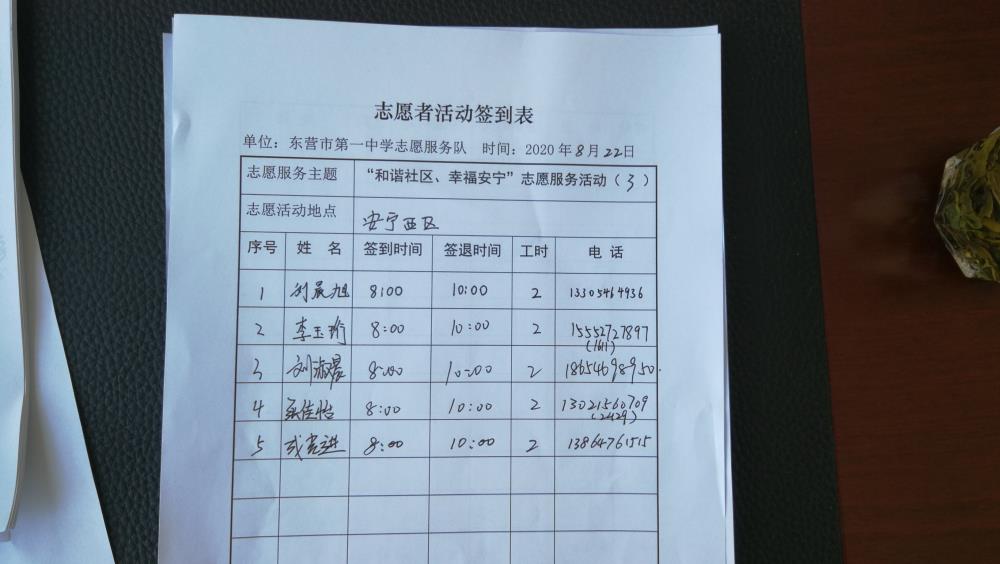 志愿者活动签到表
单位：东营市第一中学志愿服务队 时间：2020年8月22日
志愿服务主题 “和谐社区、幸福安宁”志愿服务活动（3）
志愿活动地点 安宁西区
序号 姓 名 签到时间 签退时间 工时 电 话
1 刘晨旭 8:00 10:00 2 13305464936
2 李玉珩 8:00 10:00 2 15552727897
(1611)
3 刘淑晨 8:00 10:00 2 18654698950.
4 佳怡 8:00 10:00 2 13021560709
(2429)
5 8:00 10:00 2 13864761515